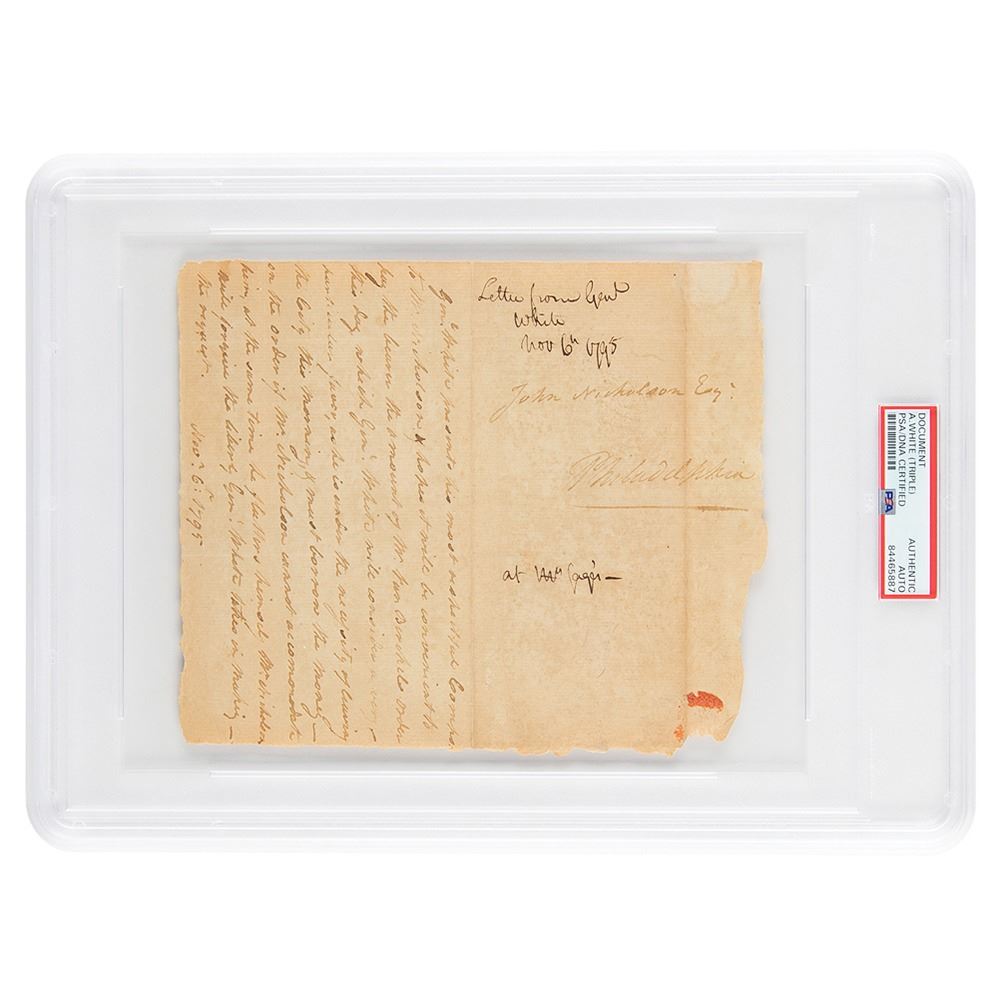 Genl. White presents his most respectful Comps.
to Mr. Nicholson & hopes it will be convenient to
pay the bearer the amount of Mr. Van Berckels order
this day, which Genl. White will consider a very
particular favor, as he is under the necessity of leaving
the City this morning & must borrow the money—
on the order if Mr. Nicholson cannot accommodate
him, at the same time he flatters himself Mr. Nicholson
will forgive the liberty Genl. White takes in making—
the request.
Novr. 6: 1795
Letter from Genl
White
Nov 6th 1795
John Nicholson Esqr.
Philadelphia
at
DOCUMENT
A.WHITE (TRIPLE)
PSA/DNA CERTIFIED
PSA
AUTHENTIC
AUTO
84465887